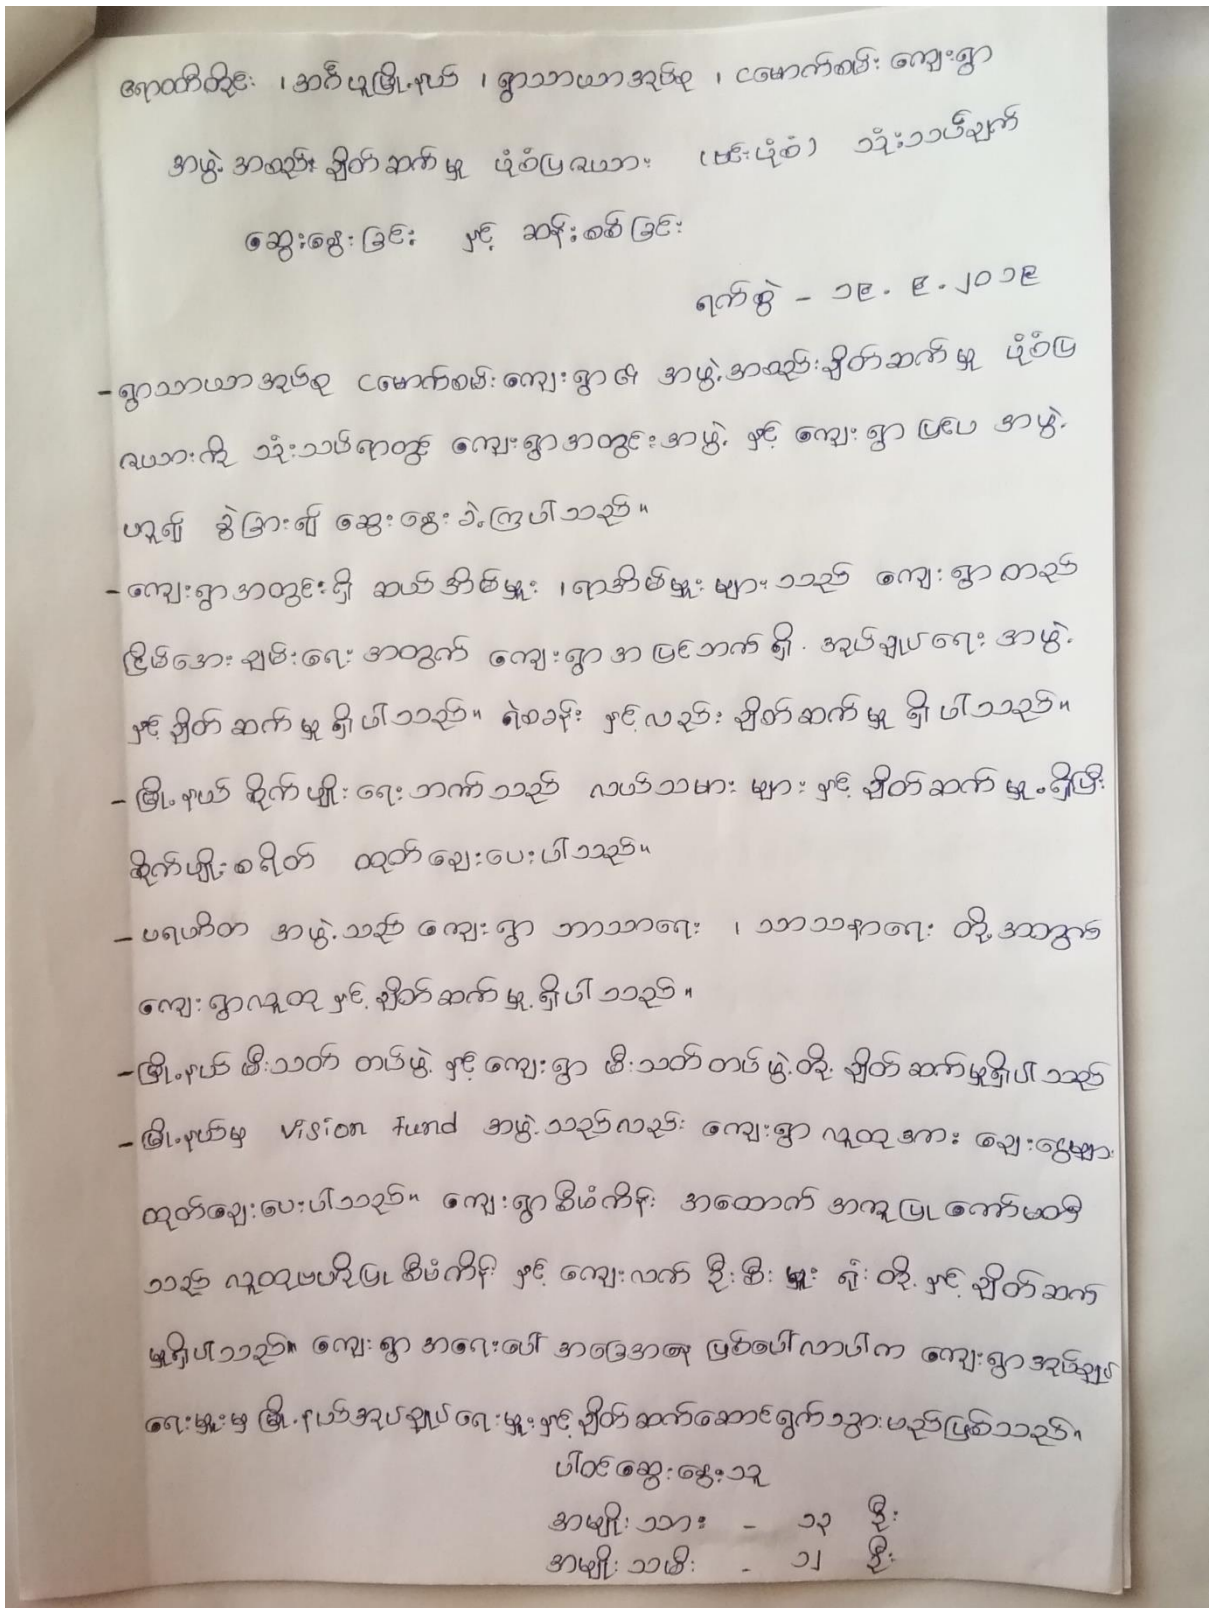 ဧရာဝတီတိုင်း ၊ အင်္ဂပူမြို့နယ် ၊ ရွာသာယာအုပ်စု ၊ ငမောက်စမ်း ကျေးရွာ
အဖွဲ့အစည်း ချိတ်ဆက်မှု ပုံစံပြဇယား (ဗင်းပုံစံ) သုံးသပ်ချက်
ဆွေးနွေးခြင်း နှင့် ဆန်းစစ်ခြင်း
ရက်စွဲ - ၁၉.၉.၂၀၁၉
- ရွာသာယာအုပ်စု ငမောက်စမ်းကျေးရွာ၏ အဖွဲ့အစည်းချိတ်ဆက်မှု ပုံစံပြ
ဇယားကို သုံးသပ်ရာတွင် ကျေးရွာအတွင်းအဖွဲ့ နှင့် ကျေးရွာ ပြင်ပ အဖွဲ့
ဟူ၍ ခွဲခြား၍ ဆွေးနွေးခဲ့ကြပါသည်။
- ကျေးရွာအတွင်းရှိ ဆယ်အိမ်မှူး ၊ ရာအိမ်မှူးများသည် ကျေးရွာတည်
ငြိမ်အေးချမ်းရေး အတွက် ကျေးရွာအပြင်ဘက်ရှိ အုပ်ချုပ်ရေး အဖွဲ့
နှင့် ချိတ်ဆက်မှု ရှိပါသည်။ ရဲစခန်း နှင့်လည်း ချိတ်ဆက်မှု ရှိပါသည်။
- မြို့နယ် စိုက်ပျိုးရေးဘဏ်သည် လယ်သမားများ နှင့် ချိတ်ဆက်မှု ရှိပြီး
စိုက်ပျိုးစရိတ် ထုတ်ချေးပေးပါသည်။
- ပရဟိတ အဖွဲ့သည် ကျေးရွာ ဘာသာရေး ၊ သာသနာရေး တို့အတွက်
ကျေးရွာလူထု နှင့် ချိတ်ဆက်မှု ရှိပါသည်။
- မြို့နယ် မီးသတ် တပ်ဖွဲ့ နှင့် ကျေးရွာ မီးသတ်တပ်ဖွဲ့တို့ ချိတ်ဆက်မှုရှိပါသည်
- မြို့နယ်မှ Vision Fund အဖွဲ့သည်လည်း ကျေးရွာ လူထုအား ချေးငွေများ
ထုတ်ချေးပေးပါသည်။ ကျေးရွာစီမံကိန်း အထောက်အကူပြု ကော်မတီ
သည် လူထုဗဟိုပြု စီမံကိန်း နှင့် ကျေးလက် ဦးစီး မှူး ရုံး တို့ နှင့် ချိတ်ဆက်
မှုရှိပါသည်။ ကျေးရွာ အရေးပေါ် အခြေအနေ ဖြစ်ပေါ်လာပါက ကျေးရွာအုပ်ချုပ်
ရေးမှူးမှ မြို့နယ်အုပ်ချုပ်ရေးမှူးနှင့် ချိတ်ဆက်ဆောင်ရွက်သွားမည်ဖြစ်သည်။
ပါဝင်ဆွေးနွေးသူ
အမျိုးသား - ၁၃ ဦး
အမျိုးသမီး - ၁၂ ဦး